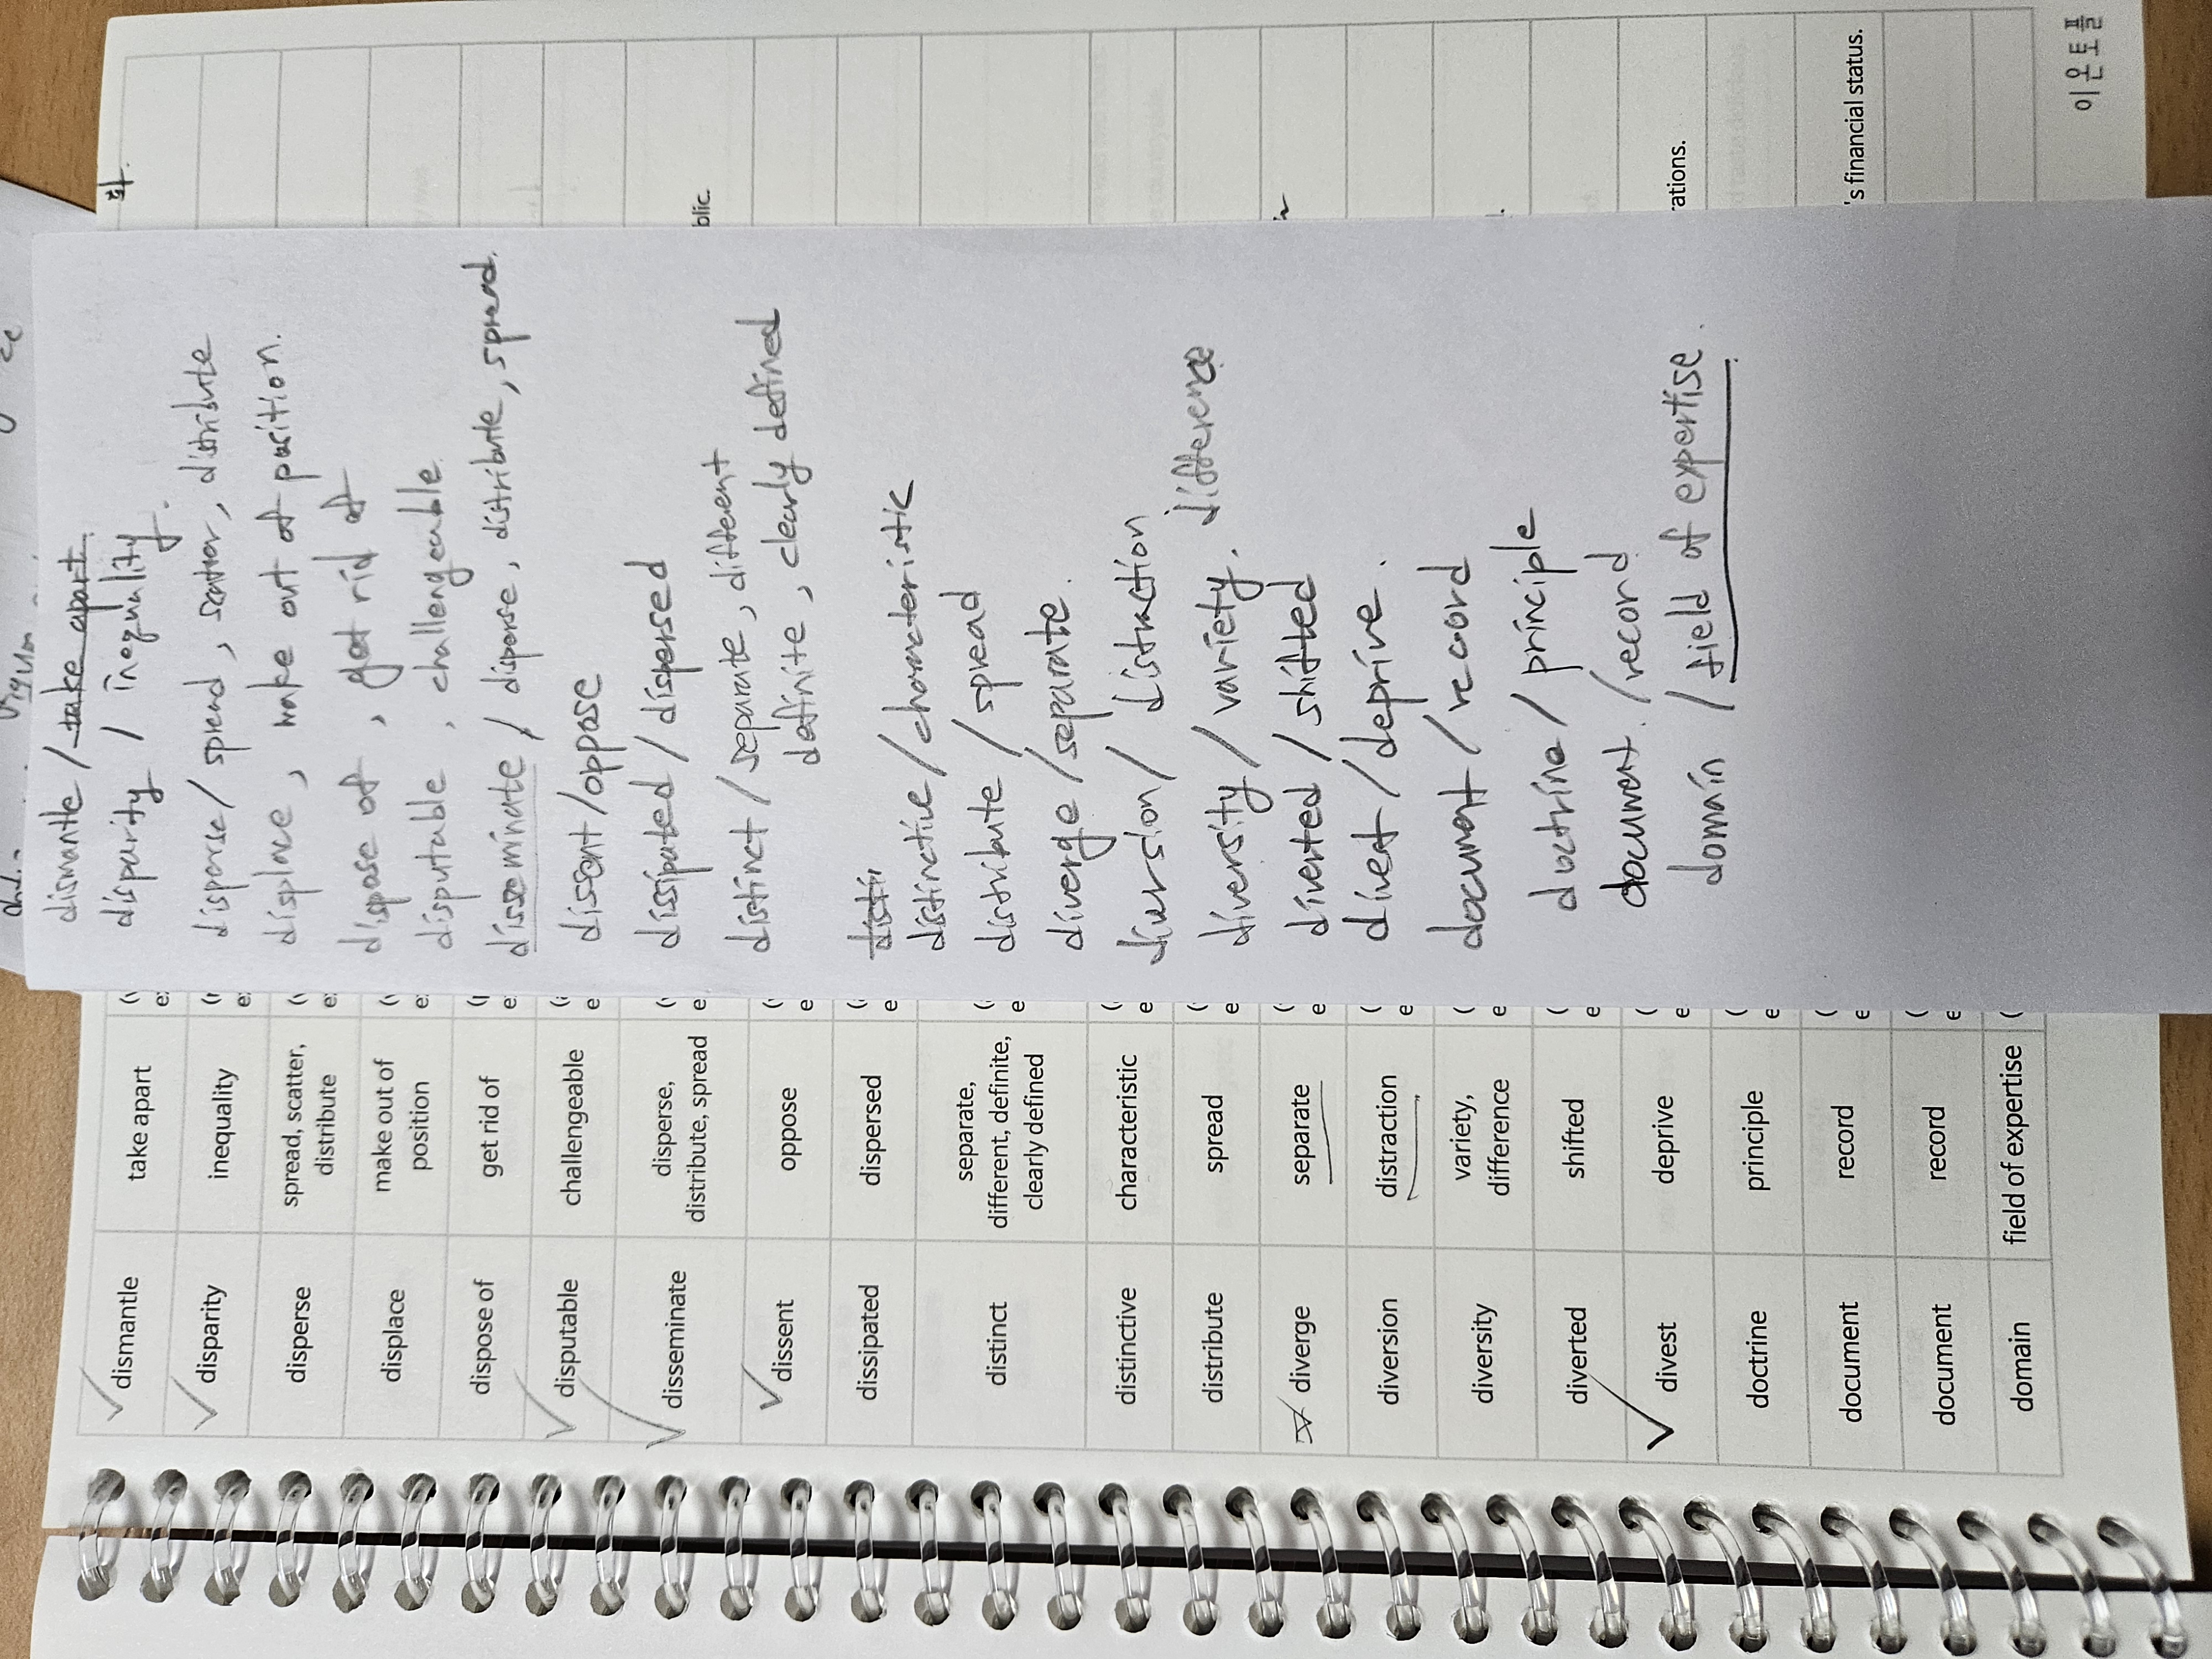 dismantle / take apart.
disparity / inequality.
disperse / spread, scatter, distribute
displace, make out of position.
dispose of, get rid of
disputable, challengeable
disseminate / disperse, distribute, spread.
dissent / oppose
dissipated / dispersed
distinct / separate, different
definite, clearly defined
distin
distinctive / characteristic
distribute / spread
diverge / separate.
diversion / distraction
diversity / variety. difference
diverted / shifted
divert / deprive.
document / record
doctrine / principle
document. / record
domain / field of expertise.
dismantle take apart
disparity inequality
disperse spread, scatter,
distribute
displace make out of
position
dispose of get rid of
disputable challengeable
disseminate disperse,
distribute, spread
dissent oppose
dissipated dispersed
distinct separate,
different, definite,
clearly defined
distinctive characteristic
distribute spread
diverge separate
diversion distraction
diversity variety,
difference
diverted shifted
divest deprive
doctrine principle
document record
document record
domain field of expertise
blic.
rations.
's financial status.
이온토플